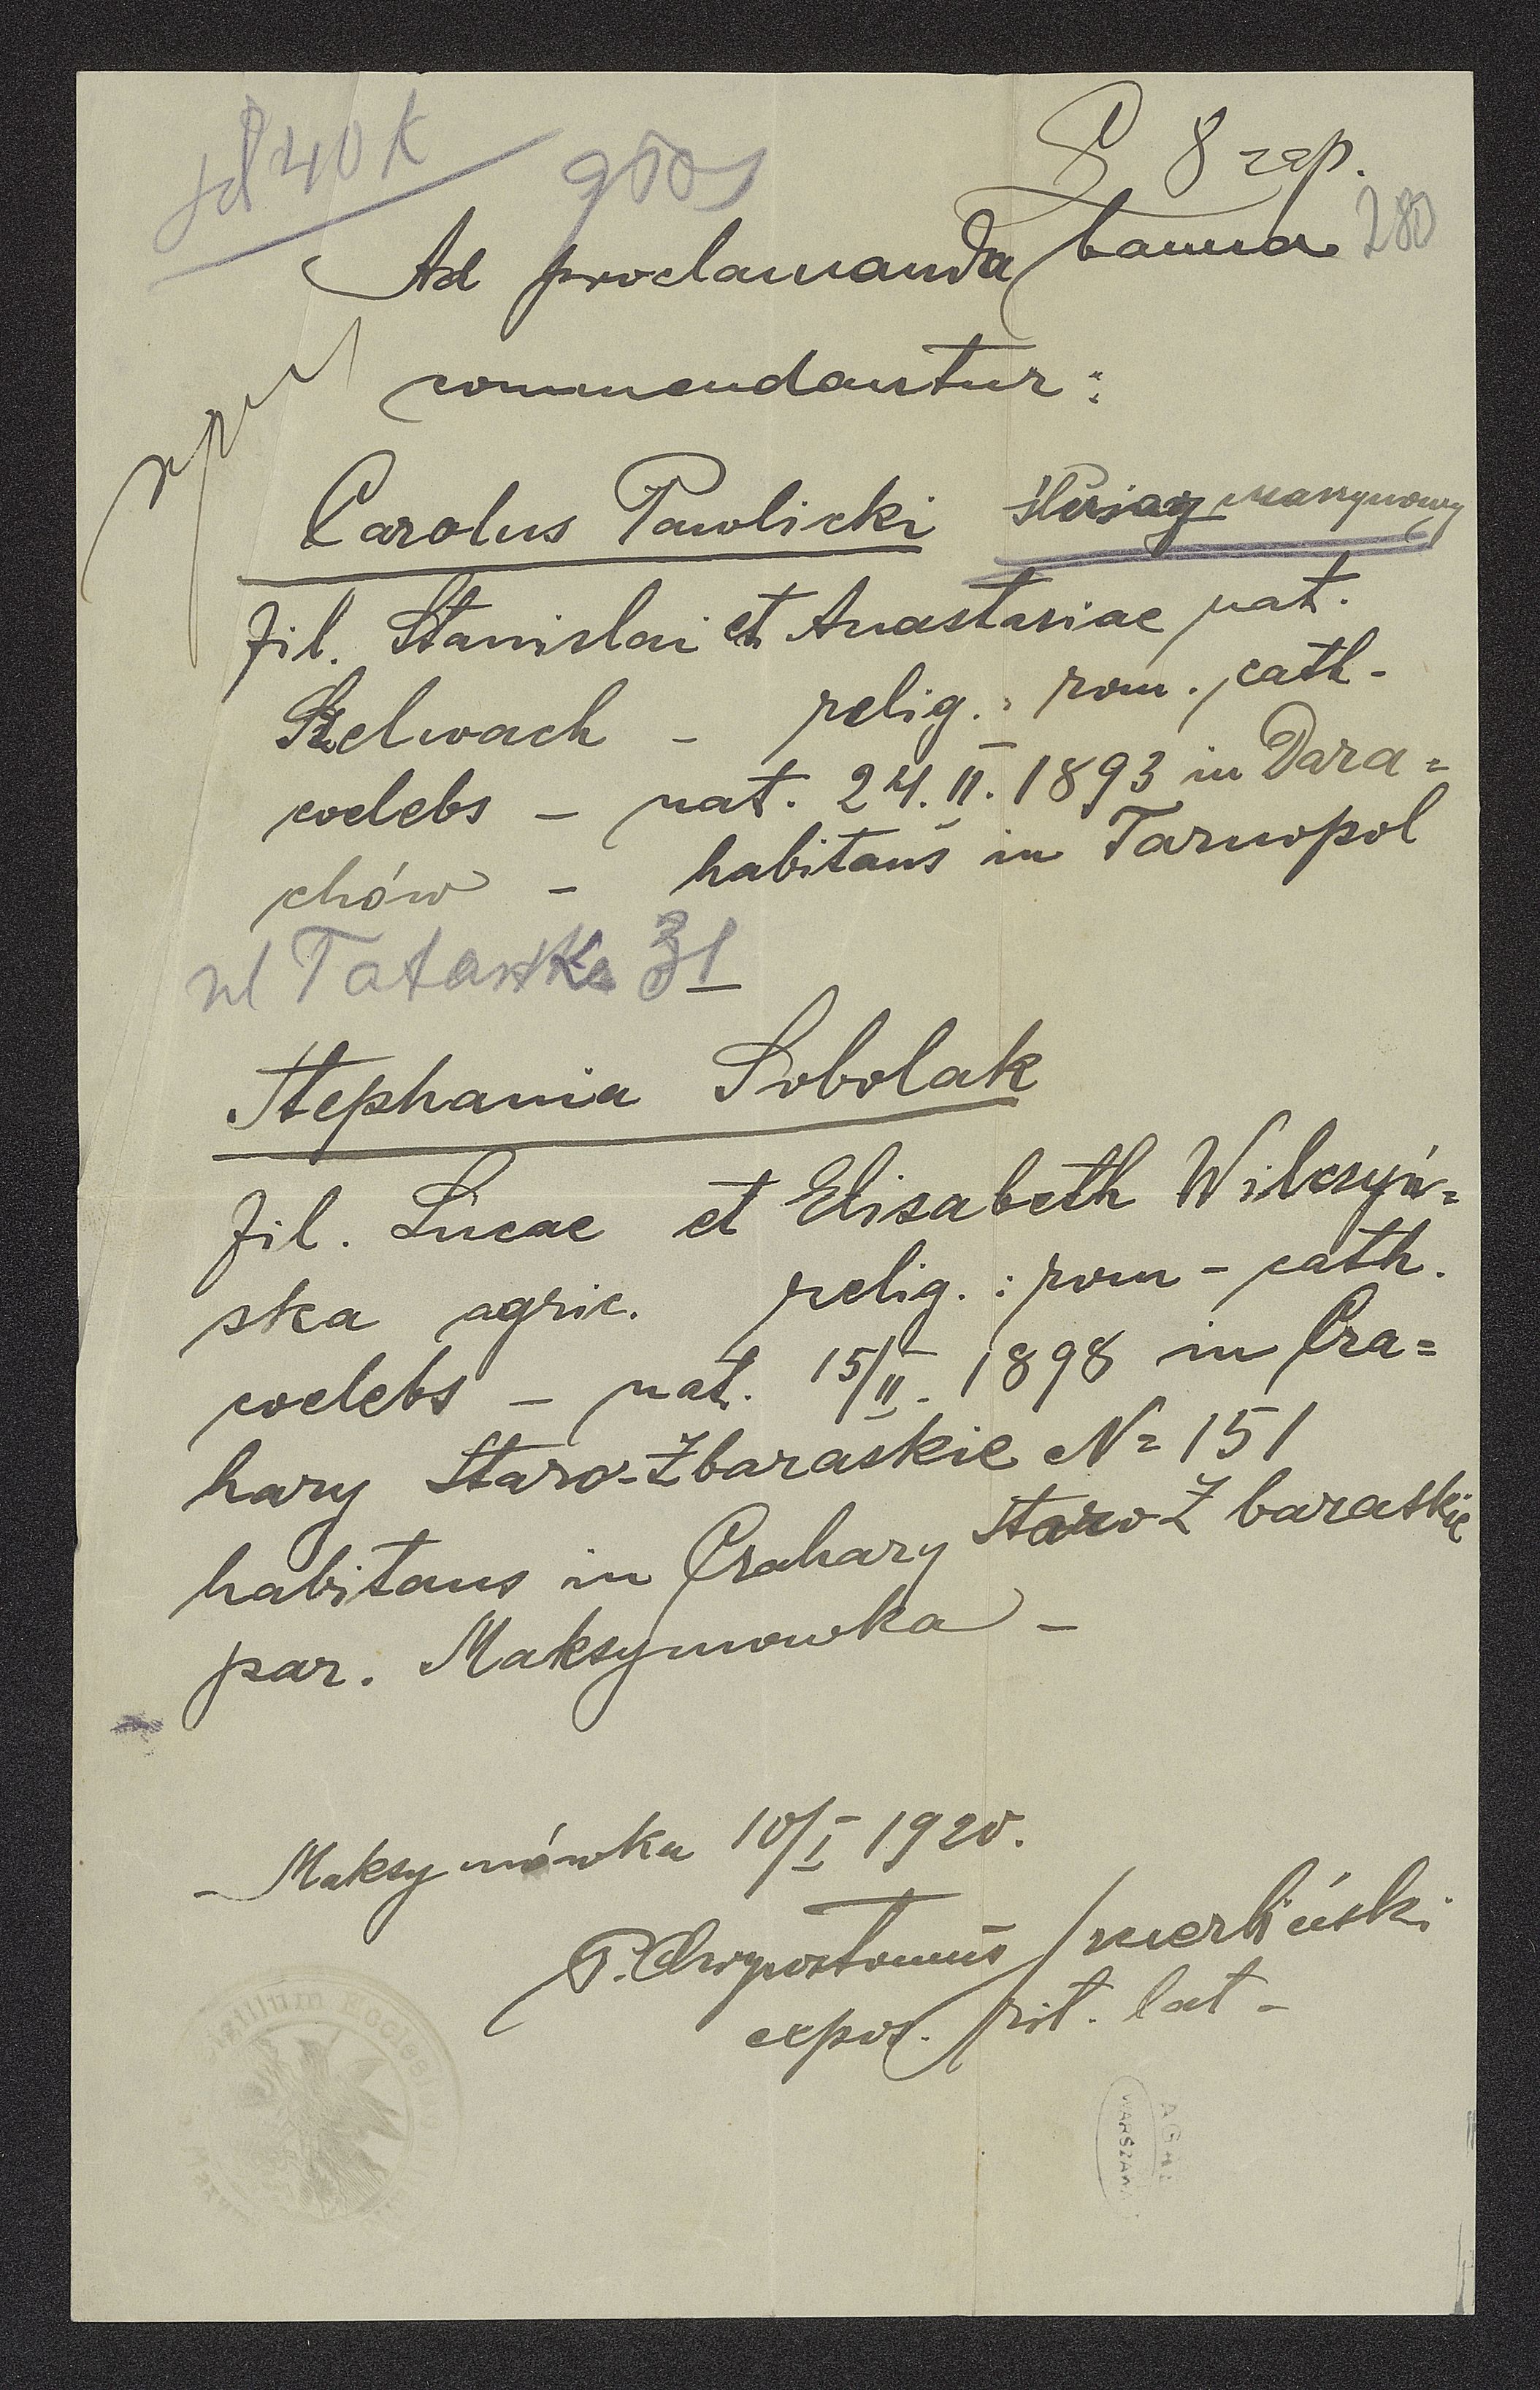 40 K
8 zap.
280
Ad proclamanda banna
commendantur:
Carolus Pawlicki ślusarz maszynowy
fil. Stanislai et Anastasiae nat.
Szelwach - relig.: rom. cath-
coelebs - nat. 24. II. 1893 in Dara=
chów - habitans in Tarnopol
ul Tatarska 31
Stephania Sobolak
fil. Lucae et Elisabeth Wilczyń=
ska agric. relig.: rom - cath.
coelebs - nat. 15/II. 1898 in Cza=
hary Staro-Zbaraskie N= 151
habitans in Czahary Staro Zbaraskie
par. Maksymowka -
Maksymówka 10/I 1920.
P. Chrysostomus
expos. rit. lat -
Sigillum Ecclesi
AGAD
WARSZAWA